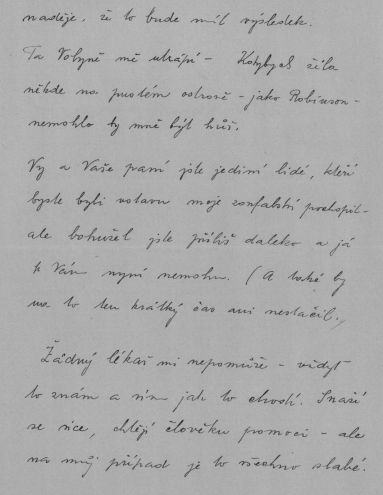 naděje, že to bude míl výsledek.
Ta Volyně mě utrápí - Kdybych žila
někde na pustém ostrově - jako Robinson -
nemohlo by mně být hůř.
Vy a Vaše paní jste jediní lidé, kteří
byste byli vstavu moje zoufalství pochopit -
ale bohužel jste příliš daleko a já
k Vám nyní nemohu. (A také by
na to ten krátký čas ani nestačil.)
Žádný lékař mi nepomůže - vždyť
to znám a vím jak to chodí. Snaží
se sice, chtějí člověku pomoci - ale
na můj případ je to všechno slabé.